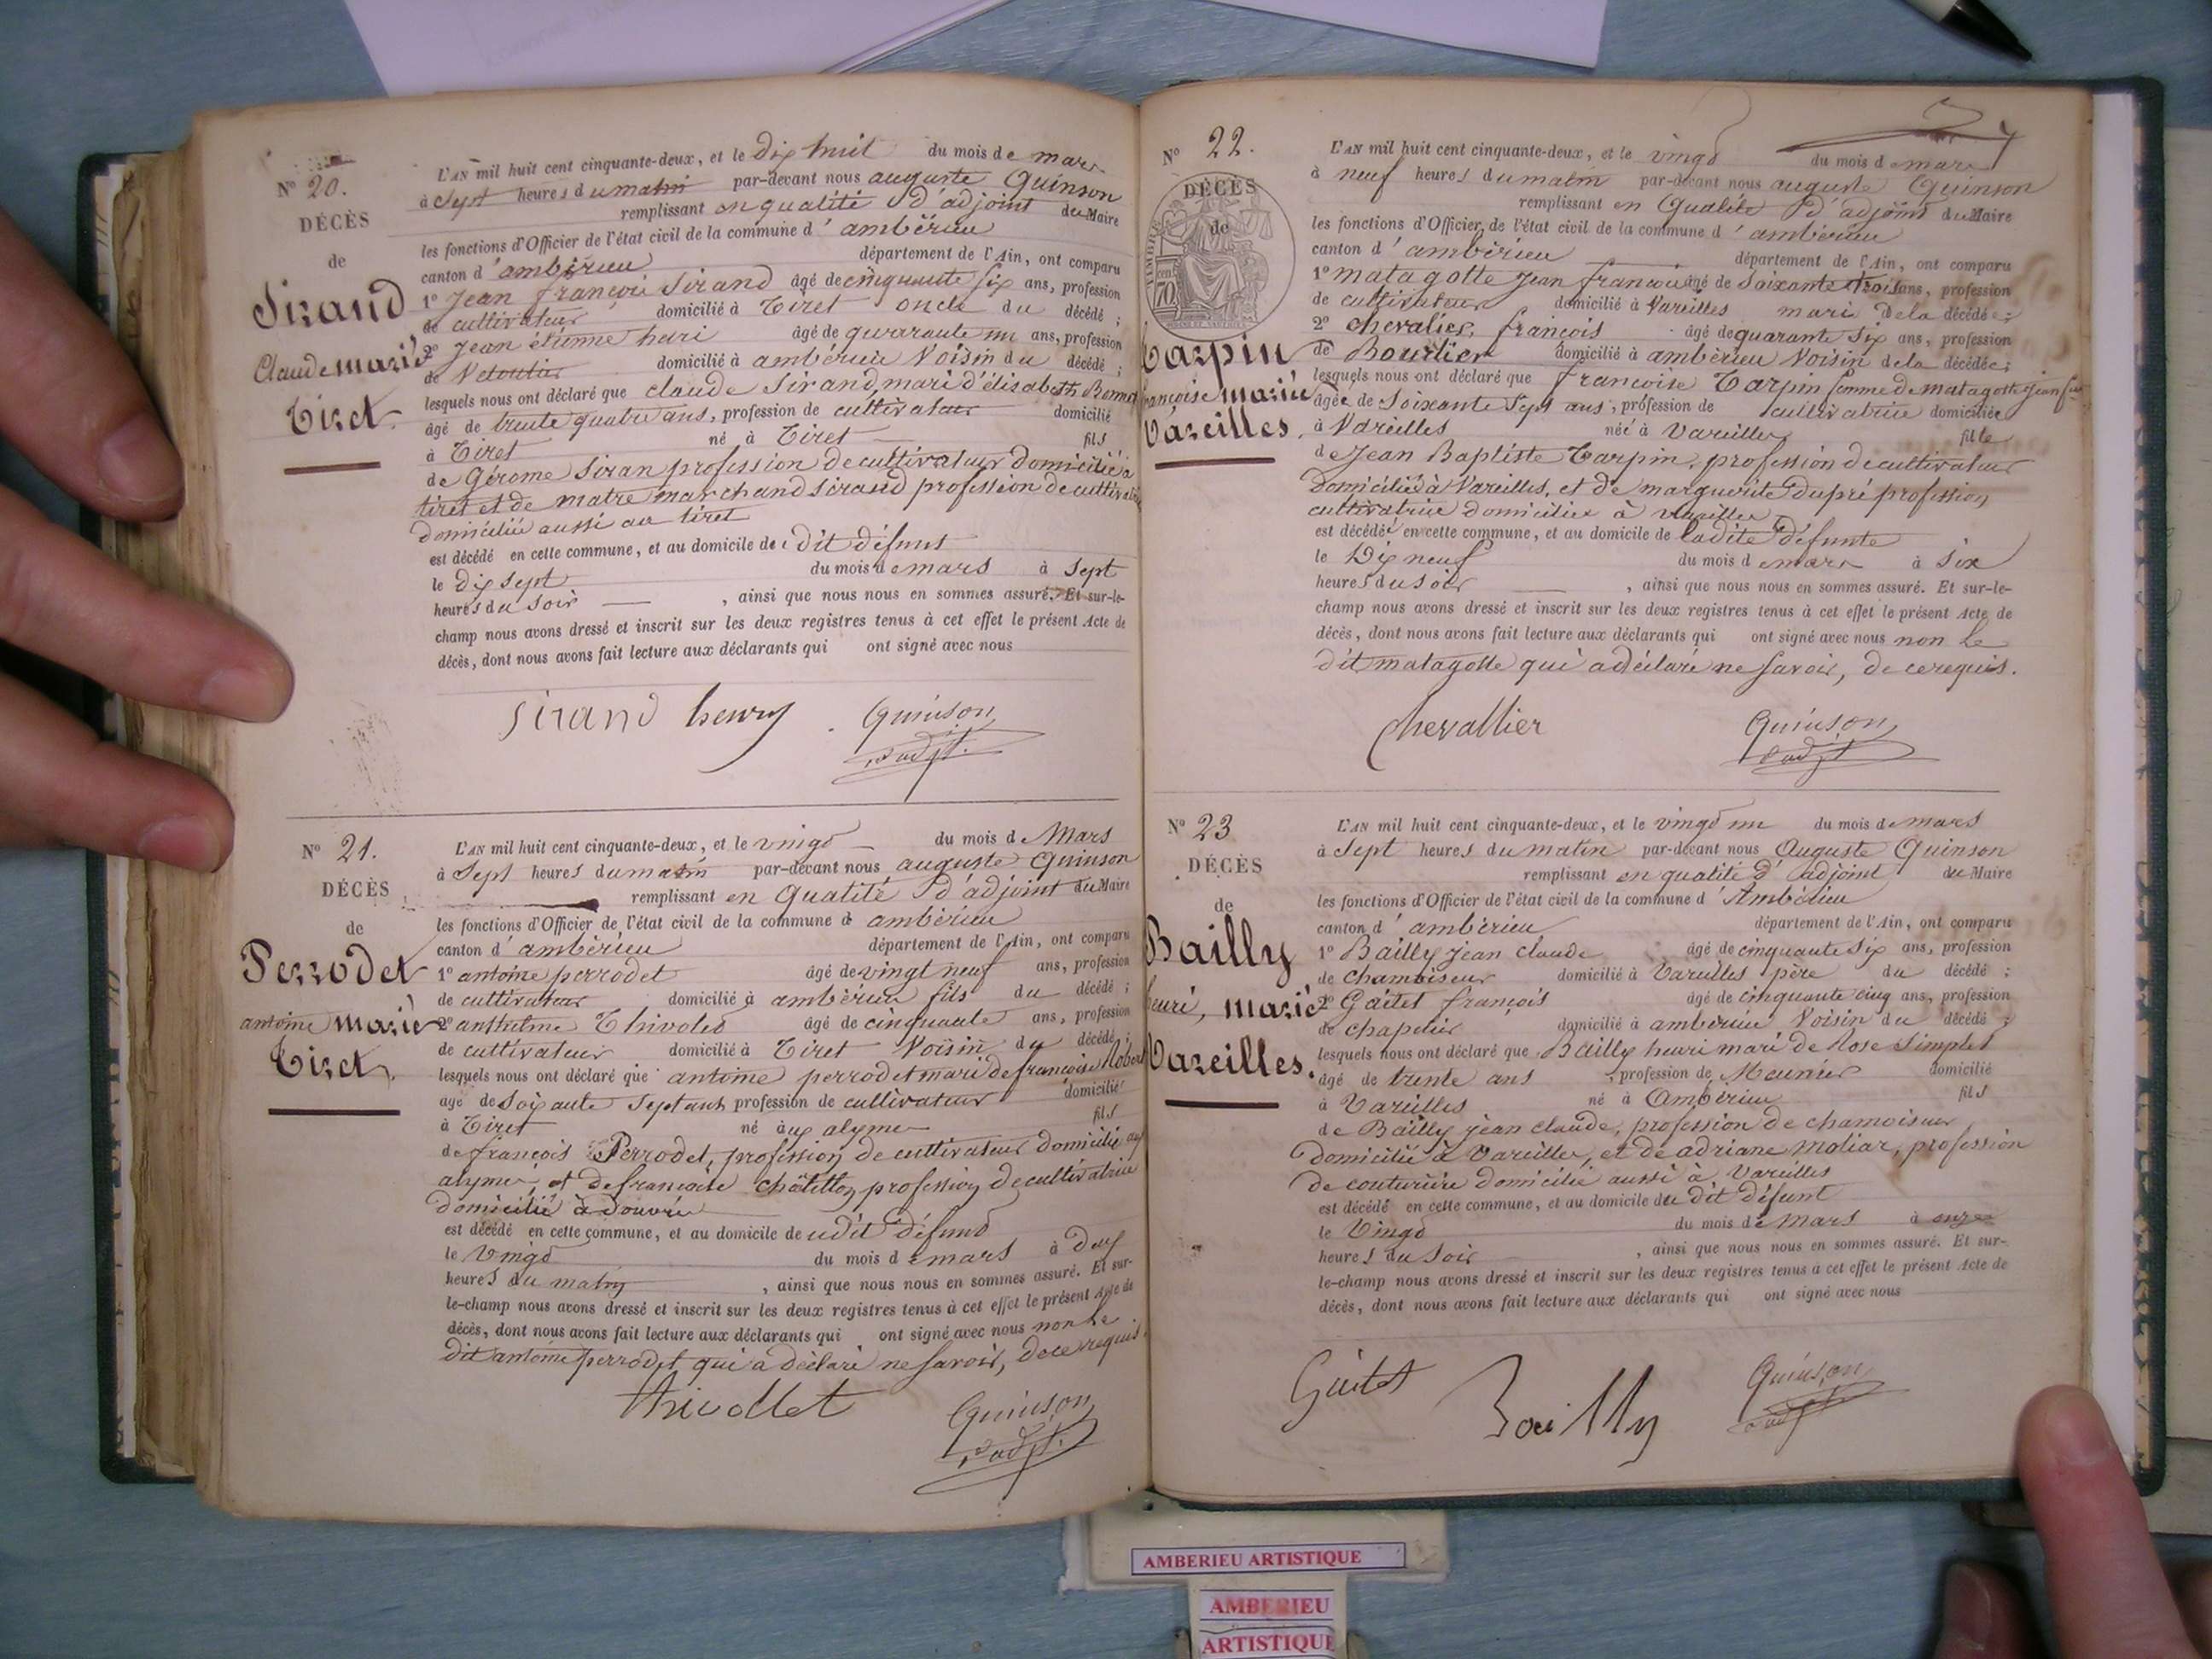 N° 20.
DÉCÈS
de
Sirand
Claude marié
Tiret.
L'AN mil huit cent cinquante-deux, et le dix huit du mois de mars
à Sept heures du matin par-devant nous auguste Quinson
remplissant en qualité d'adjoint du Maire
les fonctions d'Officier de l'état civil de la commune d'ambérieu
canton d'ambérieu département de l'Ain, ont comparu
1° Jean françois Sirand âgé de cinquante six ans, profession
de cultivateur domicilié à Tiret oncle du décédé ;
2° Jean étienne henri âgé de quarante un ans, profession
de domicilié à ambérieu Voisin du décédé ;
lesquels nous ont déclaré que claude Sirand, mari d'élisabeth
âgé de trente quatre ans, profession de cultivateur domicilié
à Tiret né à Tiret fils
de Gérome Siran profession de cultivateur domicilié à
tiret et de marchand Sirand profession de
domiciliée aussi au tiret
est décédé en cette commune, et au domicile de dit défunt
le dix sept du mois de mars à Sept
heures du Soir , ainsi que nous nous en sommes assuré. Et sur-le-
champ nous avons dressé et inscrit sur les deux registres tenus à cet effet le présent Acte de
décès, dont nous avons fait lecture aux déclarants qui ont signé avec nous
Sirand henry Quinson
d'adjt.
N° 21.
DÉCÈS
de
Perrodet
antoine marié
Tiret.
L'AN mil huit cent cinquante-deux, et le vingt du mois de Mars
à Sept heures du matin par-devant nous auguste Quinson
remplissant en Qualité d'adjoint du Maire
les fonctions d'Officier de l'état civil de la commune d ambérieu
canton d'ambérieu département de l'Ain, ont comparu
1° antoine perrodet âgé de vingt neuf ans, profession
de cultivateur domicilié à ambérieu fils du décédé ;
2° anthelme Thivolet âgé de cinquante ans, profession
de cultivateur domicilié à Tiret Voisin du décédé ;
lesquels nous ont déclaré que antoine perrodet mari de françoise
âgé de Soixante Sept ans profession de cultivateur domicilié
à Tiret né aux alymes fils
de françois Perrodet, profession de cultivateur domicilié aux
alymes, et de françoise châtillon profession de cultivatrice
domicilié à douvres
est décédé en cette commune, et au domicile de udit défunt
le Vingt du mois de mars à Deux
heures du matin , ainsi que nous nous en sommes assuré. Et sur-
le-champ nous avons dressé et inscrit sur les deux registres tenus à cet effet le présent Acte de
décès, dont nous avons fait lecture aux déclarants qui ont signé avec nous non le
dit antoine perrodet qui a déclaré ne Savoir, de ce requis.
thivollet Quinson
d'adjt.
N° 22.
DÉCÈS
de
TIMBRE
70
Tarpin
françoise mariée
Vareilles.
L'AN mil huit cent cinquante-deux, et le vingt du mois de mars
à neuf heures du matin par-devant nous auguste Quinson
remplissant en Qualité d'adjoint du Maire
les fonctions d'Officier de l'état civil de la commune d'ambérieu
canton d'ambérieu département de l'Ain, ont comparu
1° matagotte Jean francois âgé de Soixante trois ans, profession
de cultivateur domicilié à Vareilles mari de la décédée ;
2° chevalier, françois âgé de quarante Six ans, profession
de Bourlier domicilié à ambérieu Voisin de la décédée ;
lesquels nous ont déclaré que francoise Tarpin femme de matagotte Jean
âgée de Soixante Sept ans, profession de cultivatrice domiciliée
à Vareilles née à Vareilles fille
de Jean Baptiste Tarpin, profession de cultivateur
domicilié à Vareilles, et de marguerite Dupré profession
cultivatrice domiciliée à Vareilles
est décédée en cette commune, et au domicile de ladite défunte
le Dix neuf du mois de mars à Six
heures du Soir , ainsi que nous nous en sommes assuré. Et sur-le-
champ nous avons dressé et inscrit sur les deux registres tenus à cet effet le présent Acte de
décès, dont nous avons fait lecture aux déclarants qui ont signé avec nous non le
dit matagotte qui a déclaré ne Savoir, de ce requis.
Chevallier Quinson
d'adjt
N° 23
DÉCÈS
de
Bailly
henri, marié
Vareilles.
L'AN mil huit cent cinquante-deux, et le vingt un du mois de mars
à Sept heures du matin par-devant nous Auguste Quinson
remplissant en qualité d'adjoint du Maire
les fonctions d'Officier de l'état civil de la commune d'Ambérieu
canton d'ambérieu département de l'Ain, ont comparu
1° Bailly jean claude âgé de cinquante Six ans, profession
de chamoiseur domicilié à Vareilles père du décédé ;
2° Gaitet françois âgé de cinquante cinq ans, profession
de chapelier domicilié à ambérieu Voisin du décédé ;
lesquels nous ont déclaré que Bailly henri mari de Rose Simplet
âgé de trente ans , profession de Meunier domicilié
à Vareilles né à Ambérieu fils
de Bailly jean claude, profession de chamoiseur
domicilié à Vareilles, et de adriane moliar, profession
de couturière domicilié aussi à Vareilles
est décédé en cette commune, et au domicile du dit défunt
le Vingt du mois de Mars à onze
heures du Soir , ainsi que nous nous en sommes assuré. Et sur-
le-champ nous avons dressé et inscrit sur les deux registres tenus à cet effet le présent Acte de
décès, dont nous avons fait lecture aux déclarants qui ont signé avec nous
Gaitet Bailly Quinson
AMBERIEU ARTISTIQUE
AMBERIEU
ARTISTIQUE